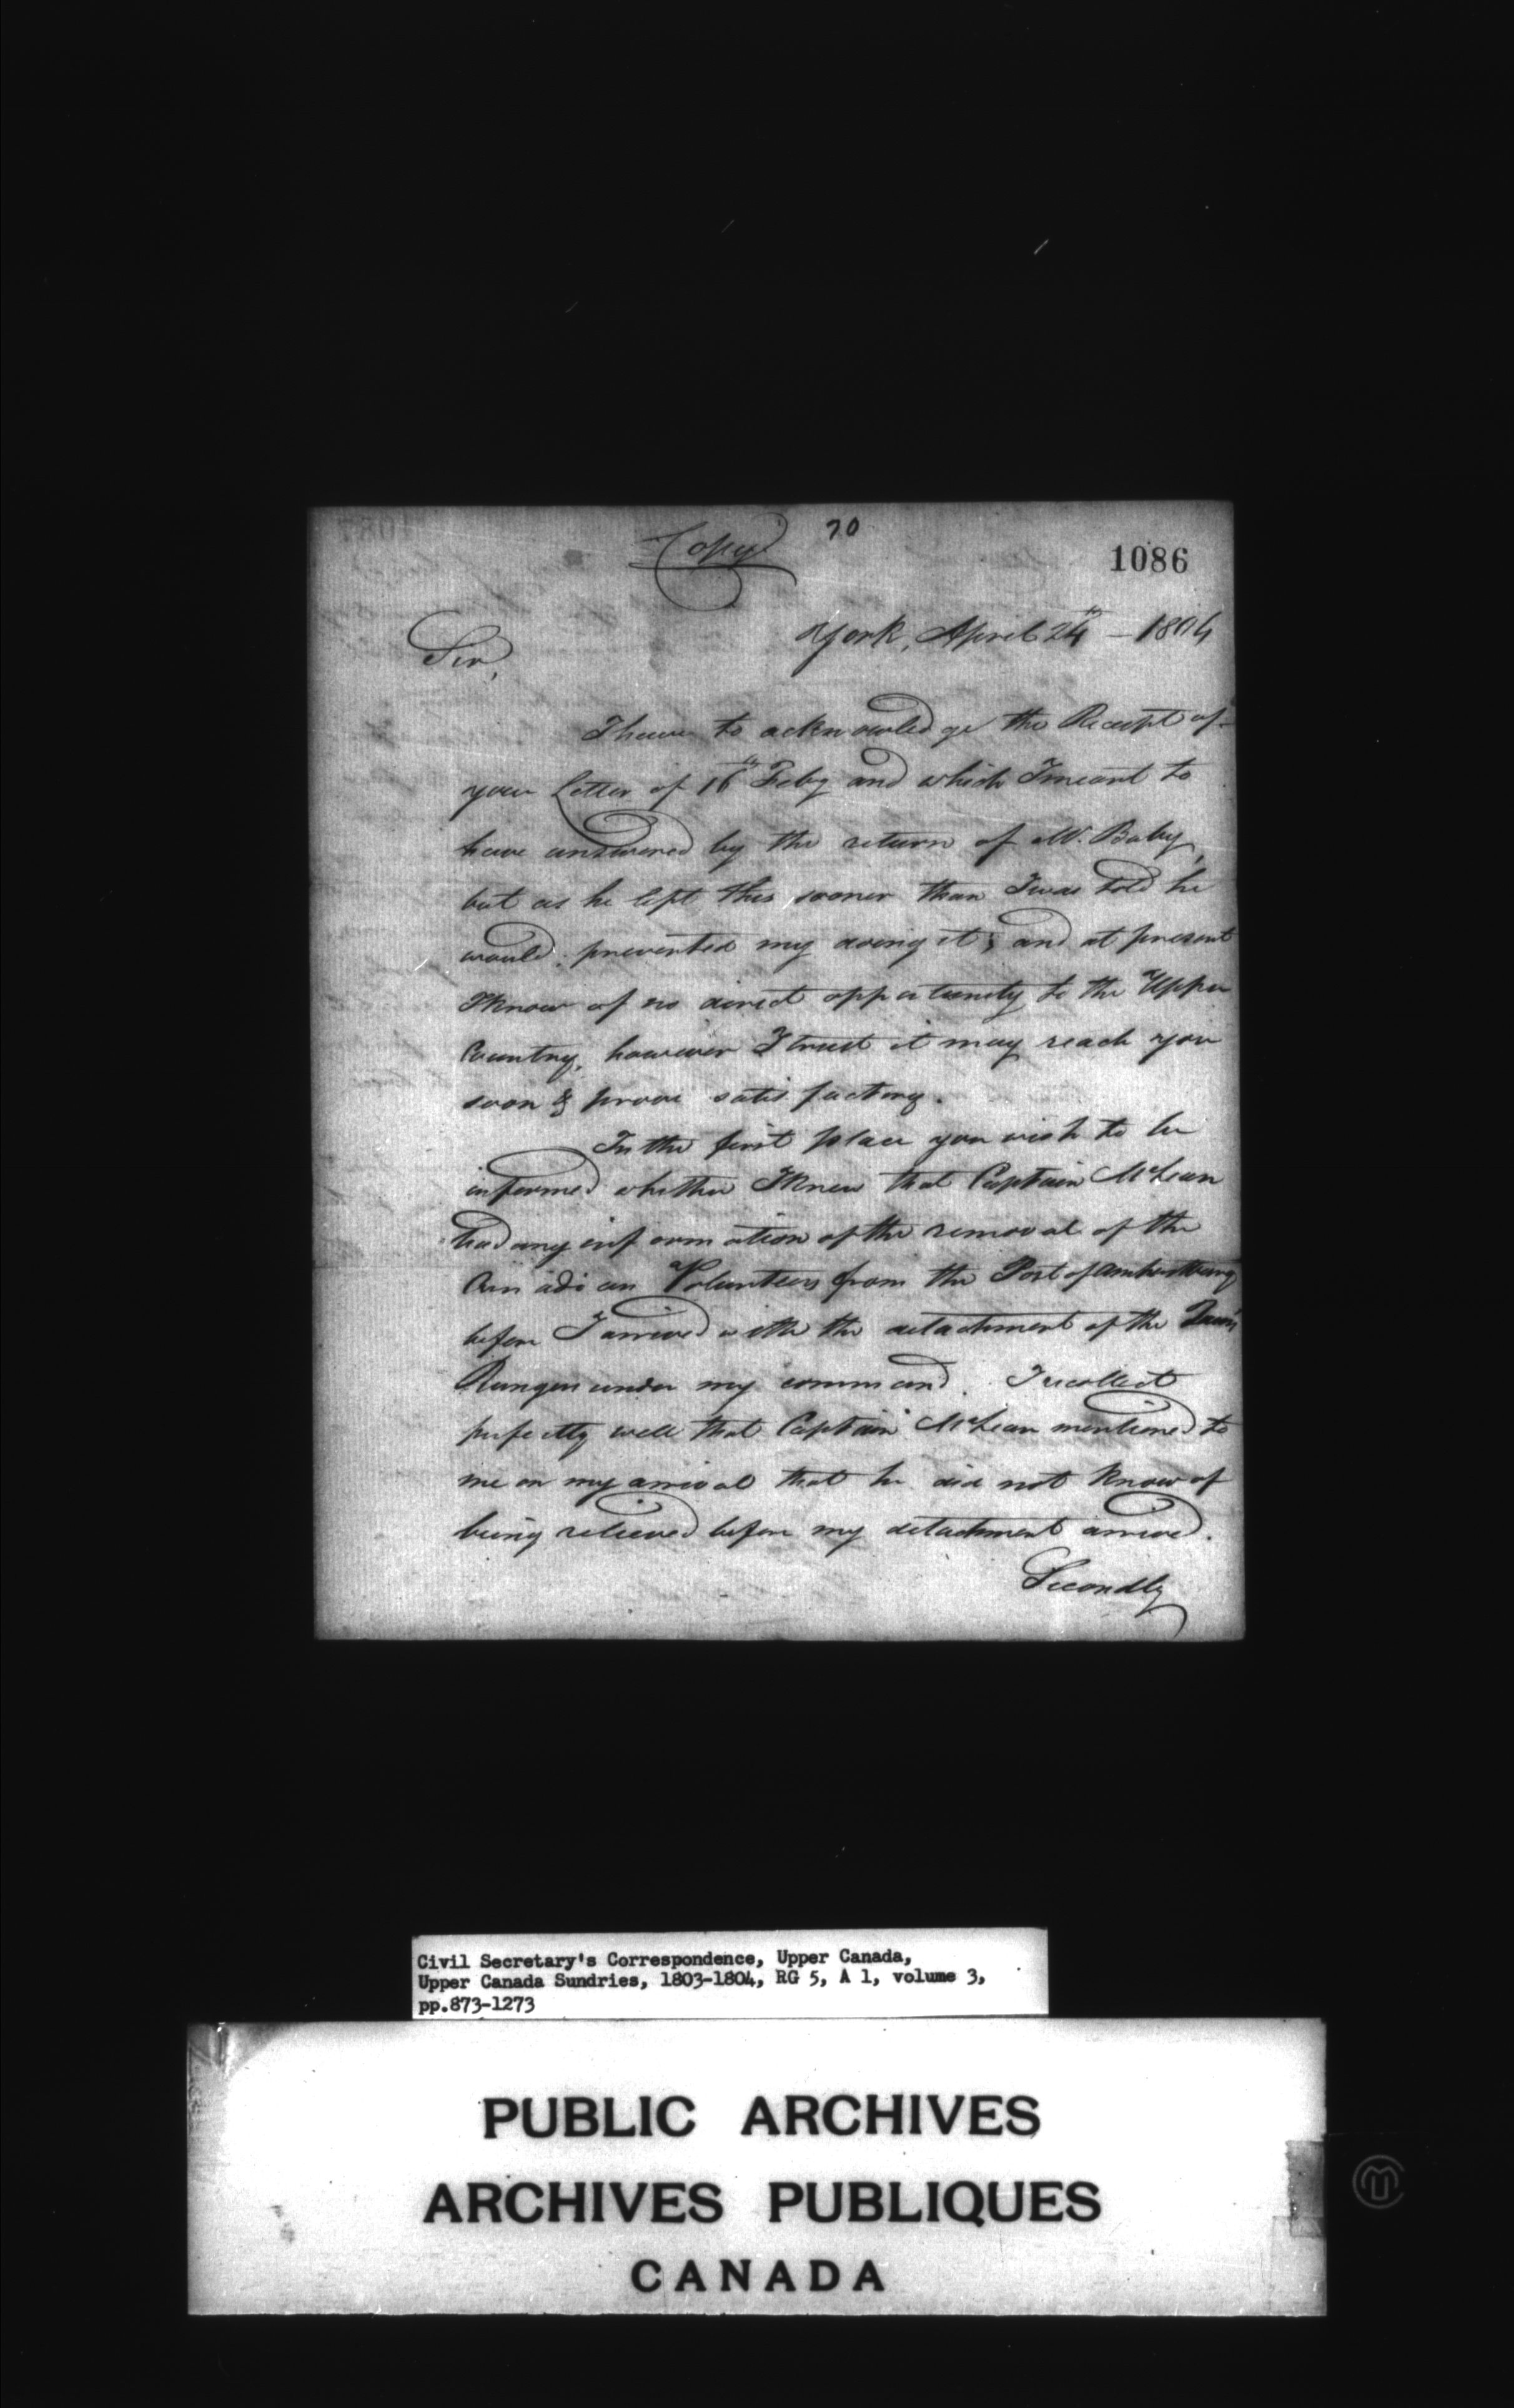 Copy
70
1086
York, April 24th – 1804
Sir,
I have to acknowledge the Receipt of
your Letter of 16th Feby and which I meant to
have answered by the return of Mr. Baby,
but as he left this sooner than I was told he
would; prevented my doing it; and at present
I know of no direct oppertunity to the Upper
Country, however I trust it may reach you
soon & prove satisfactory.
In the first place you wish to be
informed whether I knew that Captain McLean
had any information of the removal of the
Canadian Volunteers from the Post of Amherstburg
before I arrived with the detachment of the Queen's
Rangers under my command. I recollect
perfectly well that Captain McLean mentioned to
me on my arrival that he did not know of
being relieved before my detachment arrived.
Secondly
Civil Secretary's Correspondence, Upper Canada,
Upper Canada Sundries, 1803-1804, RG 5, A 1, volume 3,
pp.873-1273
PUBLIC ARCHIVES
ARCHIVES PUBLIQUES
CANADA